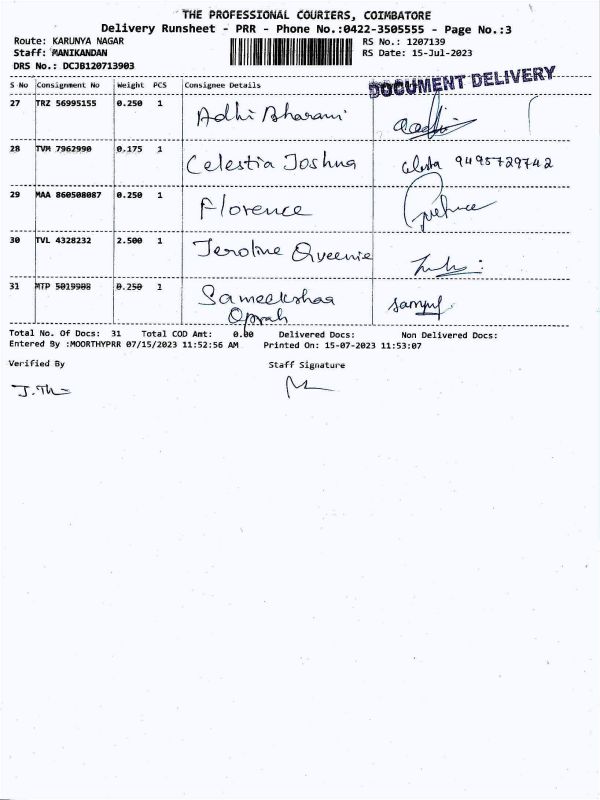 THE PROFESSIONAL COURIERS, COIMBATORE
Delivery Runsheet - PRR - Phone No.:0422-3505555 - Page No.:3
Route: KARUNYA NAGAR RS No.: 1207139
Staff: MANIKANDAN RS Date: 15-Jul-2023
DRS No.: DCJB120713903
DOCUMENT DELIVERY
S No Consignment No Weight PCS Consignee Details
27 TRZ 56995155 0.250 1 Adhi Bharani
28 TVM 7962990 0.175 1 Celestia Joshua 9495729742
29 MAA 860508087 0.250 1 Florence
30 TVL 4328232 2.500 1 Jeroline Queenie
31 MTP 5019908 0.250 1 Sameekshaa
Oprah
Total No. Of Docs: 31 Total COD Amt: 0.00 Delivered Docs: Non Delivered Docs:
Entered By :MOORTHYPRR 07/15/2023 11:52:56 AM Printed On: 15-07-2023 11:53:07
Verified By Staff Signature